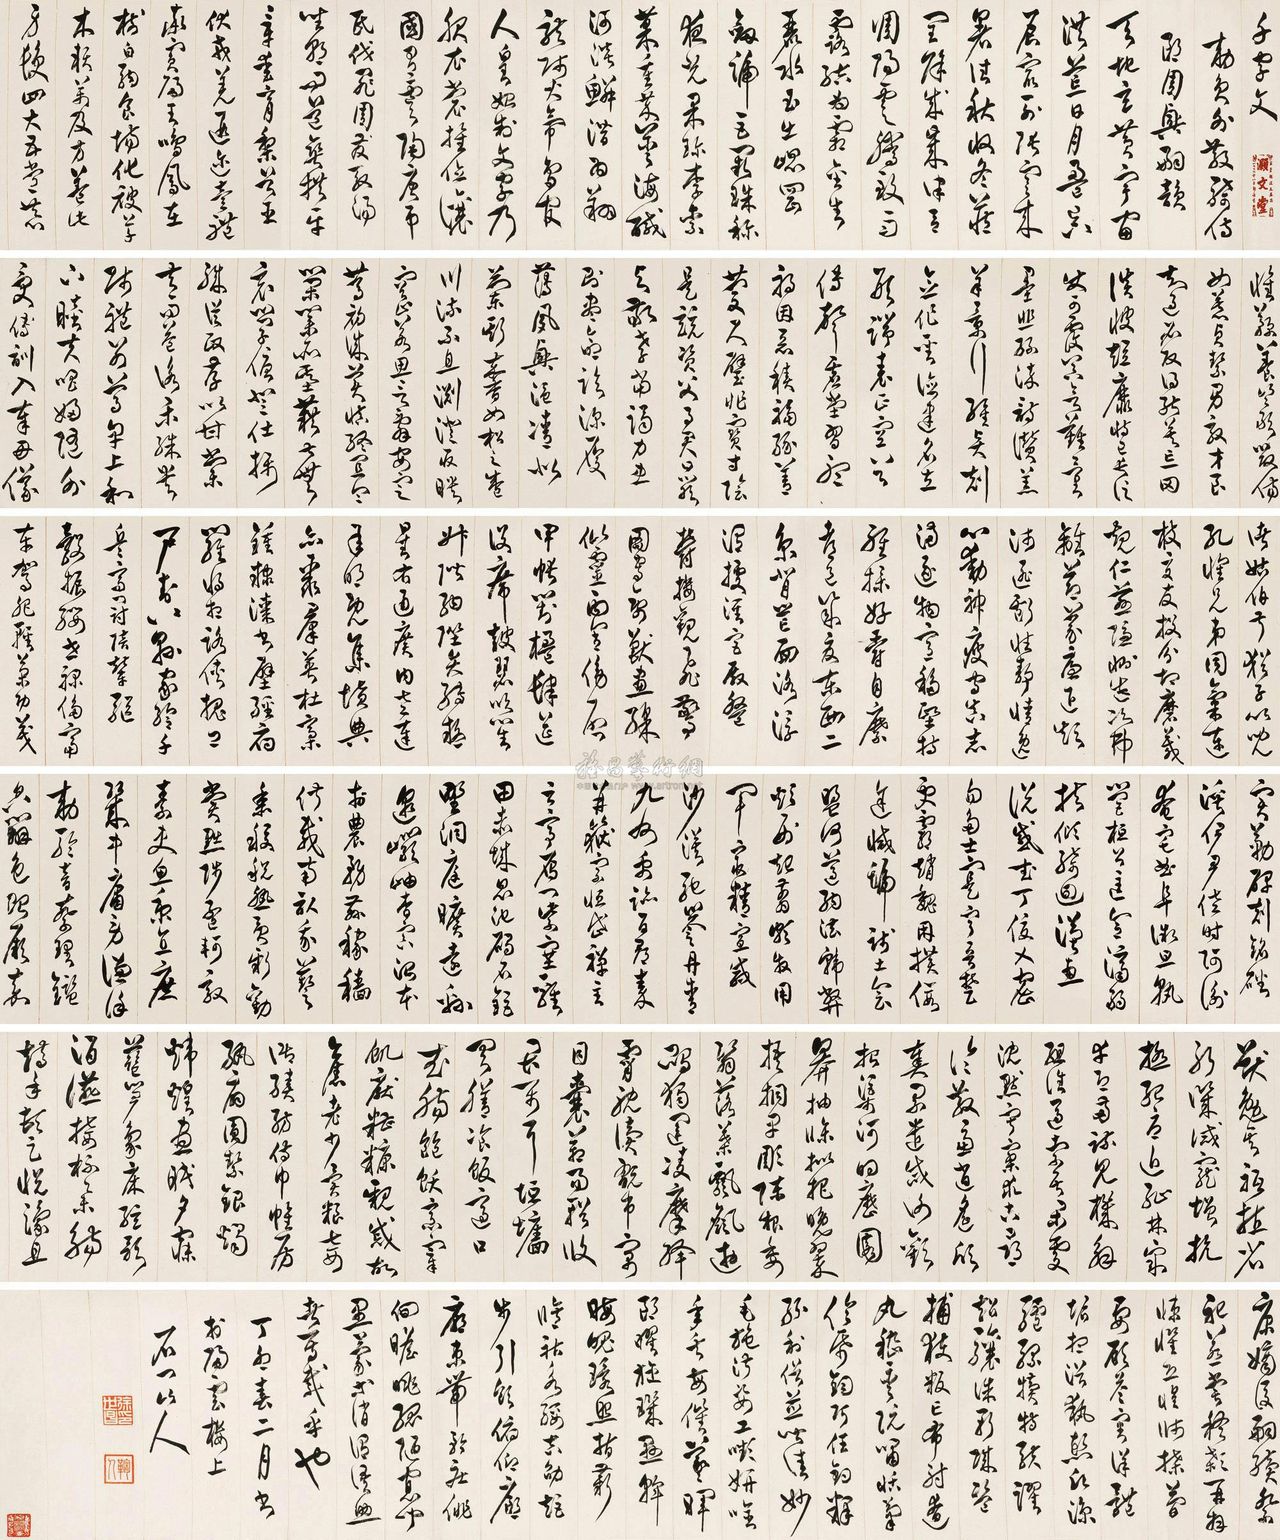 千字文
勅員外散騎侍
郎周興嗣韻
天地玄黃宇宙
洪荒日月盈昃
辰宿列張寒來
暑往秋收冬藏
閏餘成歲律呂
調陽雲騰致雨
露結為霜金生
麗水玉出崑岡
劍號巨闕珠稱
夜光果珍李柰
菜重芥薑海鹹
河淡鱗潛羽翔
龍師火帝鳥官
人皇始制文字乃
服衣裳推位讓
國有虞陶唐弔
民伐罪周發殷湯
坐朝問道垂拱平
章愛育黎首臣
伏戎羌遐邇壹體
率賓歸王鳴鳳在
樹白駒食場化被草
木賴及萬方蓋此
身髮四大五常恭
惟鞠養豈敢毀傷
女慕貞絜男效才良
知過必改得能莫忘罔
談彼短靡恃己長信
使可覆器欲難量
墨悲絲染詩讚羔
羊景行維賢剋
念作聖德建名立
形端表正空谷
傳聲虛堂習聽
禍因惡積福緣善
慶尺璧非寶寸陰
是競資父事君曰嚴
與敬孝當竭力忠
則盡命臨深履
薄夙興溫凊似
蘭斯馨如松之盛
川流不息淵澄取映
容止若思言辭安定
篤初誠美慎終宜令
榮業所基藉甚無
竟學優登仕攝
職從政存以甘棠
去而益詠樂殊貴
賤禮別尊卑上和
下睦夫唱婦隨外
受傅訓入奉母儀
諸姑伯叔猶子比兒
孔懷兄弟同氣連
枝交友投分切磨箴
規仁慈隱惻造次弗
離節義廉退顛
沛匪虧性靜情逸
心動神疲守真志
滿逐物意移堅持
雅操好爵自縻
都邑華夏東西二
京背芒面洛浮
渭據涇宮殿盤
鬱樓觀飛驚
圖寫禽獸畫綵
仙靈丙舍傍啟
甲帳對楹肆筵
設席鼓瑟吹笙
升階納陛弁轉疑
星右通廣內左達
承明既集墳典
亦聚群英杜稾
鍾隸漆書壁經府
羅將相路俠槐卿
戶封八縣家給千
兵高冠陪輦驅
轂振纓世祿侈富
車駕肥輕策功茂
實勒碑刻銘磻
溪伊尹佐時阿衡
奄宅曲阜微旦孰
營桓公匡合濟弱
扶傾綺迴漢惠
說感武丁俊乂密
勿多士寔寧晉楚
更霸趙魏困橫假
途滅虢踐土會
盟何遵約法韓弊
煩刑起翦頗牧用
軍最精宣威
沙漠馳譽丹青
九州禹跡百郡秦
并嶽宗恒岱禪主
云亭雁門紫塞雞
田赤城昆池碣石鉅
野洞庭曠遠綿
邈巖岫杳冥治本
於農務茲稼穡
俶載南畝我藝
黍稷稅熟貢新勸
賞黜陟孟軻敦
素史魚秉直庶
幾中庸勞謙謹
勅聆音察理鑑
貌辯色貽厥嘉
猷勉其祗植省
躬譏誡寵增抗
極殆辱近恥林皋
幸即兩疏見機解
組誰逼索居閑處
沉默寂寥求古尋
論散慮逍遙欣
奏累遣慼謝歡
招渠荷的歷園
莽抽條枇杷晚翠
梧桐早彫陳根委
翳落葉飄颻遊
鵾獨運凌摩絳
霄耽讀翫市寓
目囊箱易輶攸
畏屬耳垣墻
具膳飡飯適口
充腸飽飫烹宰
飢厭糟糠親戚故
舊老少異糧妾
御績紡侍巾帷房
紈扇圓絜銀燭
煒煌晝眠夕寐
藍筍象床弦歌
酒讌接杯舉觴
矯手頓足悅豫且
康嫡後嗣續祭
祀蒸嘗稽顙再拜
悚懼恐惶牋牒簡
要顧答審詳骸
垢想浴執熱願涼
驢騾犢特駭躍
超驤誅斬賊盜
捕獲叛亡布射遼
丸嵇琴阮嘯恬筆
倫紙鈞巧任釣釋
紛利俗並皆佳妙
毛施淑姿工顰妍笑
年矢每催曦暉
朗曜璇璣懸斡
晦魄環照指薪
修祜永綏吉劭矩
步引領俯仰廊
廟束帶矜莊徘
徊瞻眺孤陋寡聞
愚蒙等誚謂語助
者焉哉乎也
丁酉春二月書
於陽雲樓上
石門山人